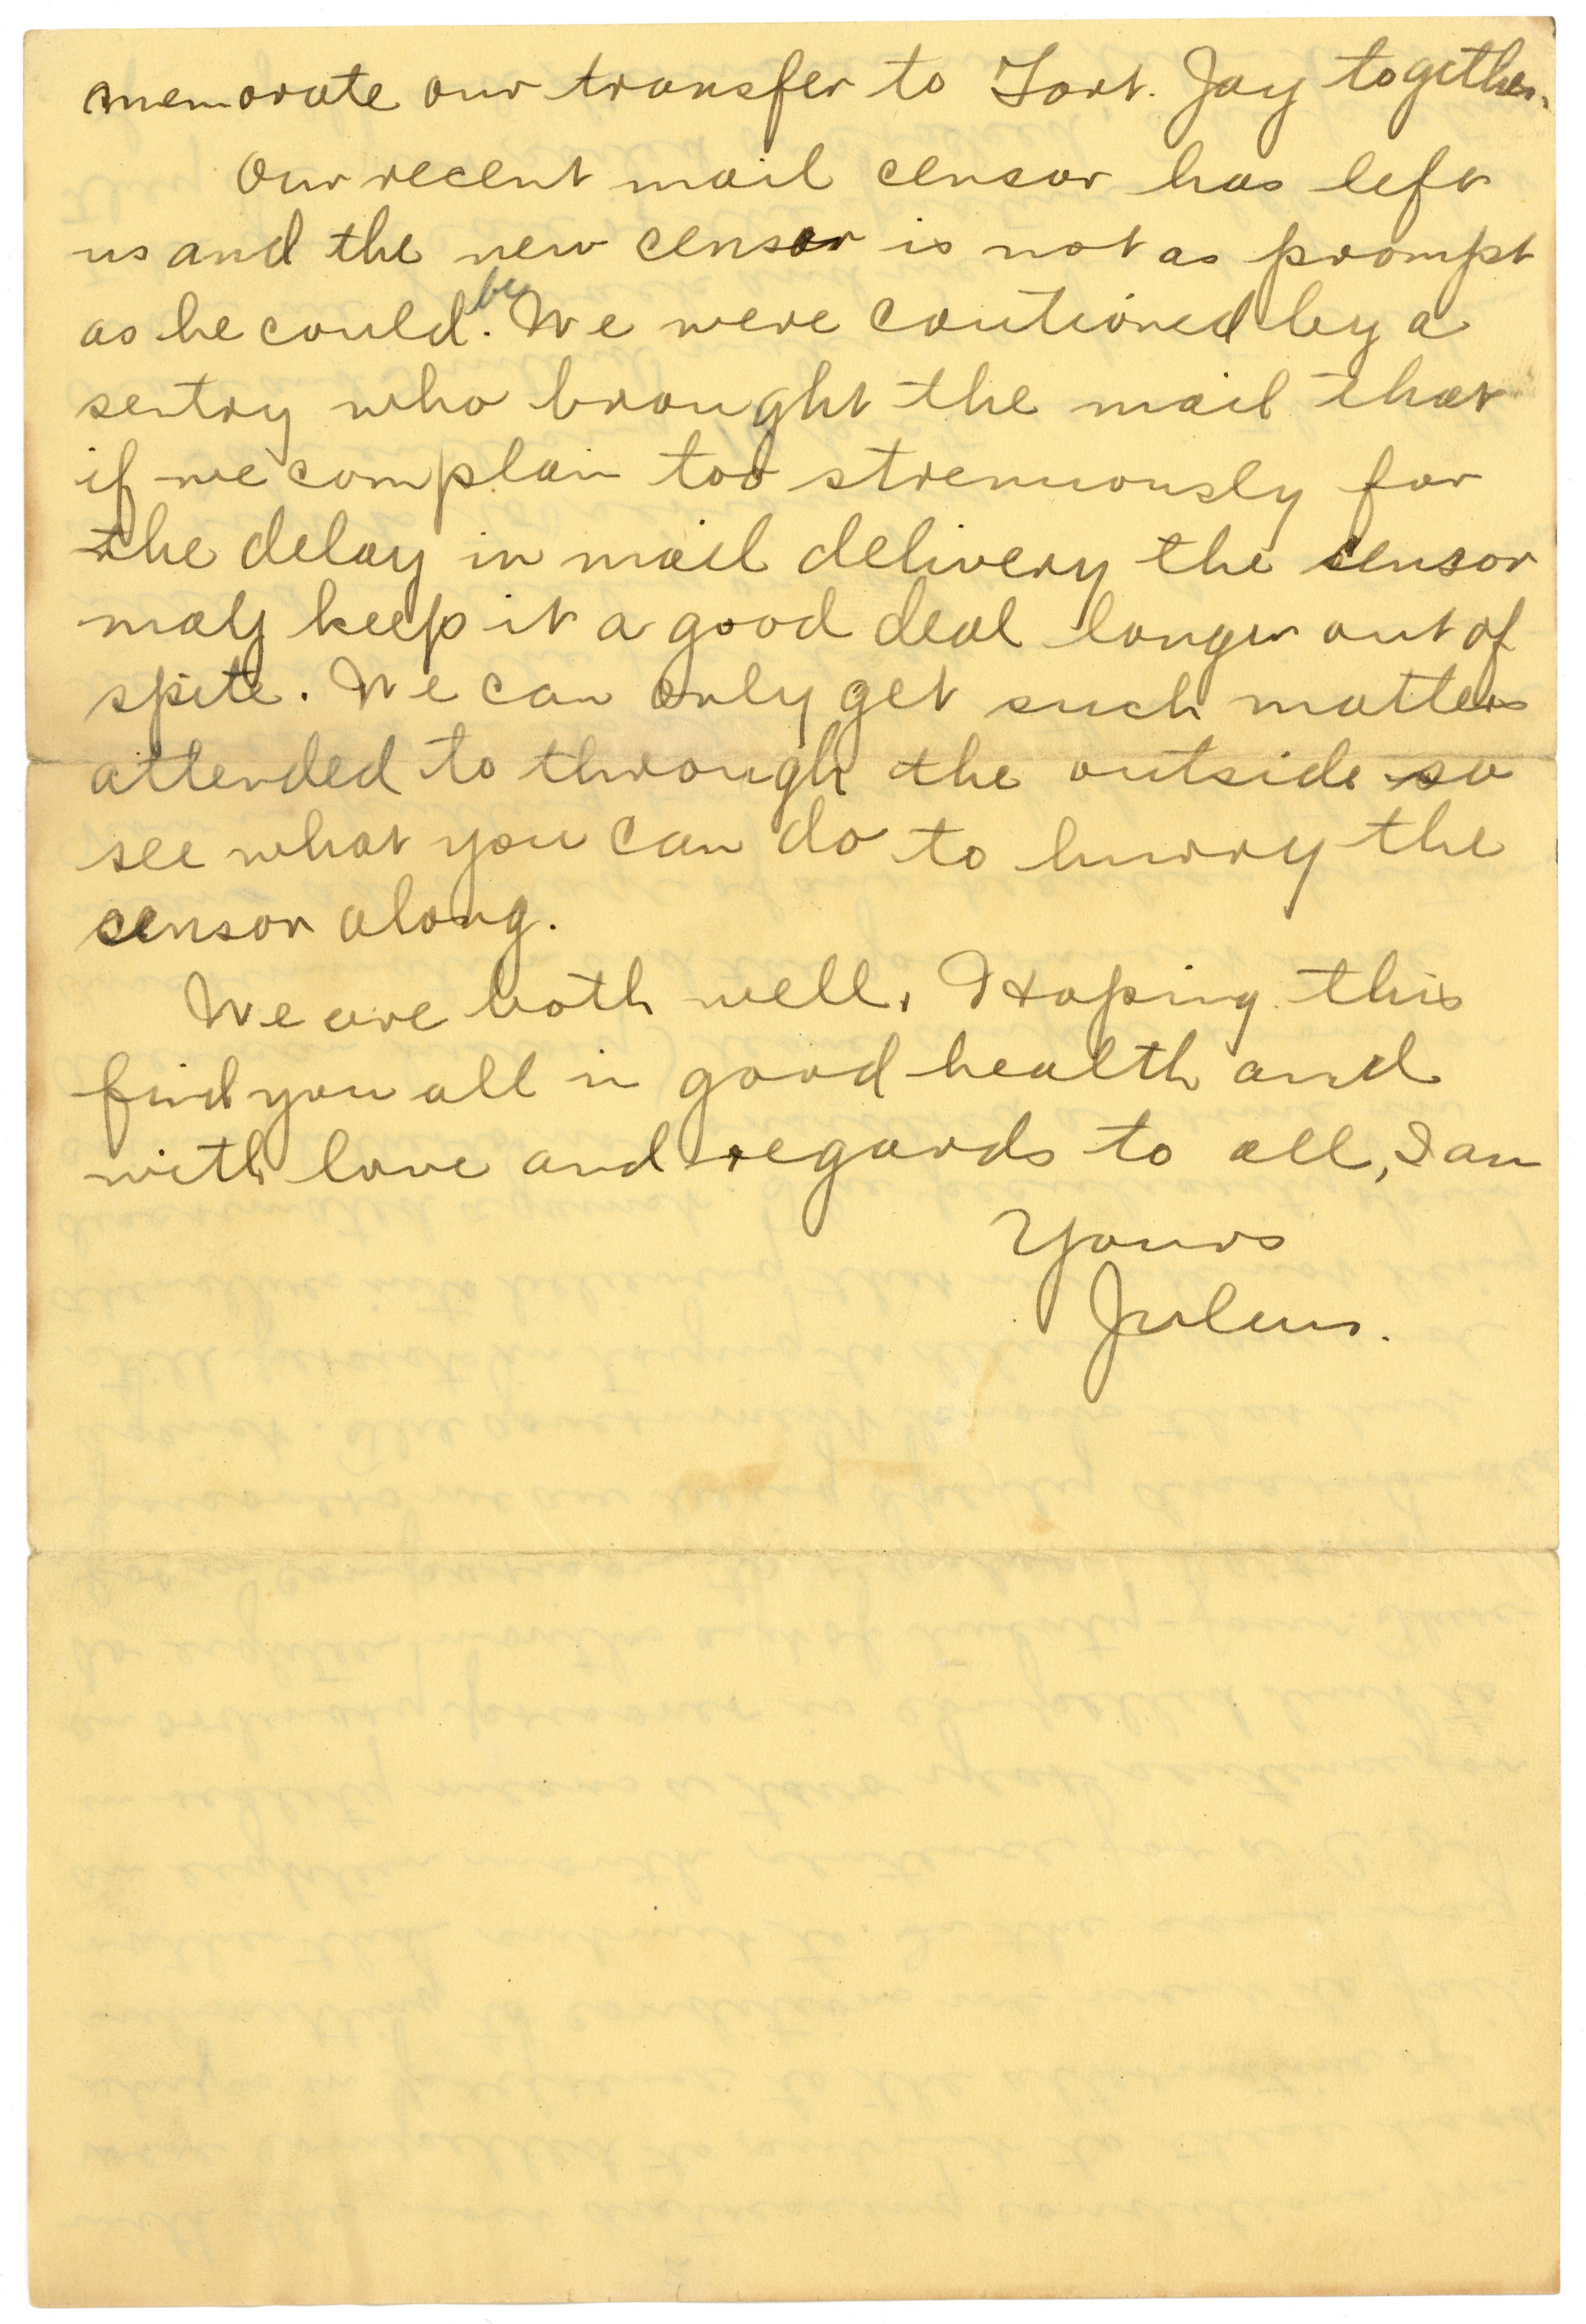 memorate our transfer to Fort. Jay together.
Our recent mail censor has left
us and the new censor is not as prompt
as he could be. We were cautioned by a
sentry who brought the mail that
if we complain too strenuously for
the delay in mail delivery the censor
maly keep it a good deal longer out of
spite. We can only get such matters
attended to through the outside so
see what you can do to hurry the
censor along.
We are both well. Hoping this
find you all in good health and
with love and regards to all, I am
Yours
Julius.